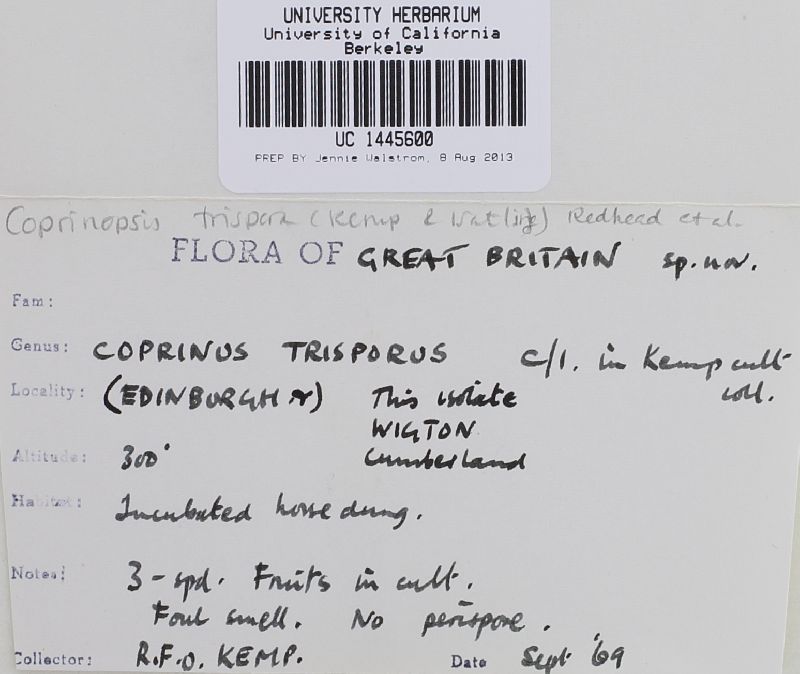 UNIVERSITY HERBARIUM
University of California
Berkeley
UC 1445600
PREP BY Jennie Walstrom, 8 Aug 2013
Coprinopsis trispora (Kemp & Watling) Redhead et al.
FLORA OF GREAT BRITAIN sp. nov.
Fam:
Genus: COPRINUS TRISPORUS C/1. in Kemp cult
coll.
Locality: (EDINBURGH) This isolate
WIGTON
Cumberland
Altitude: 300'
Habitat: Incubated horse dung.
Notes: 3-spd. Fruits in cult.
Foul smell. No perispore.
Collector: R.F.O. KEMP. Date Sept '69